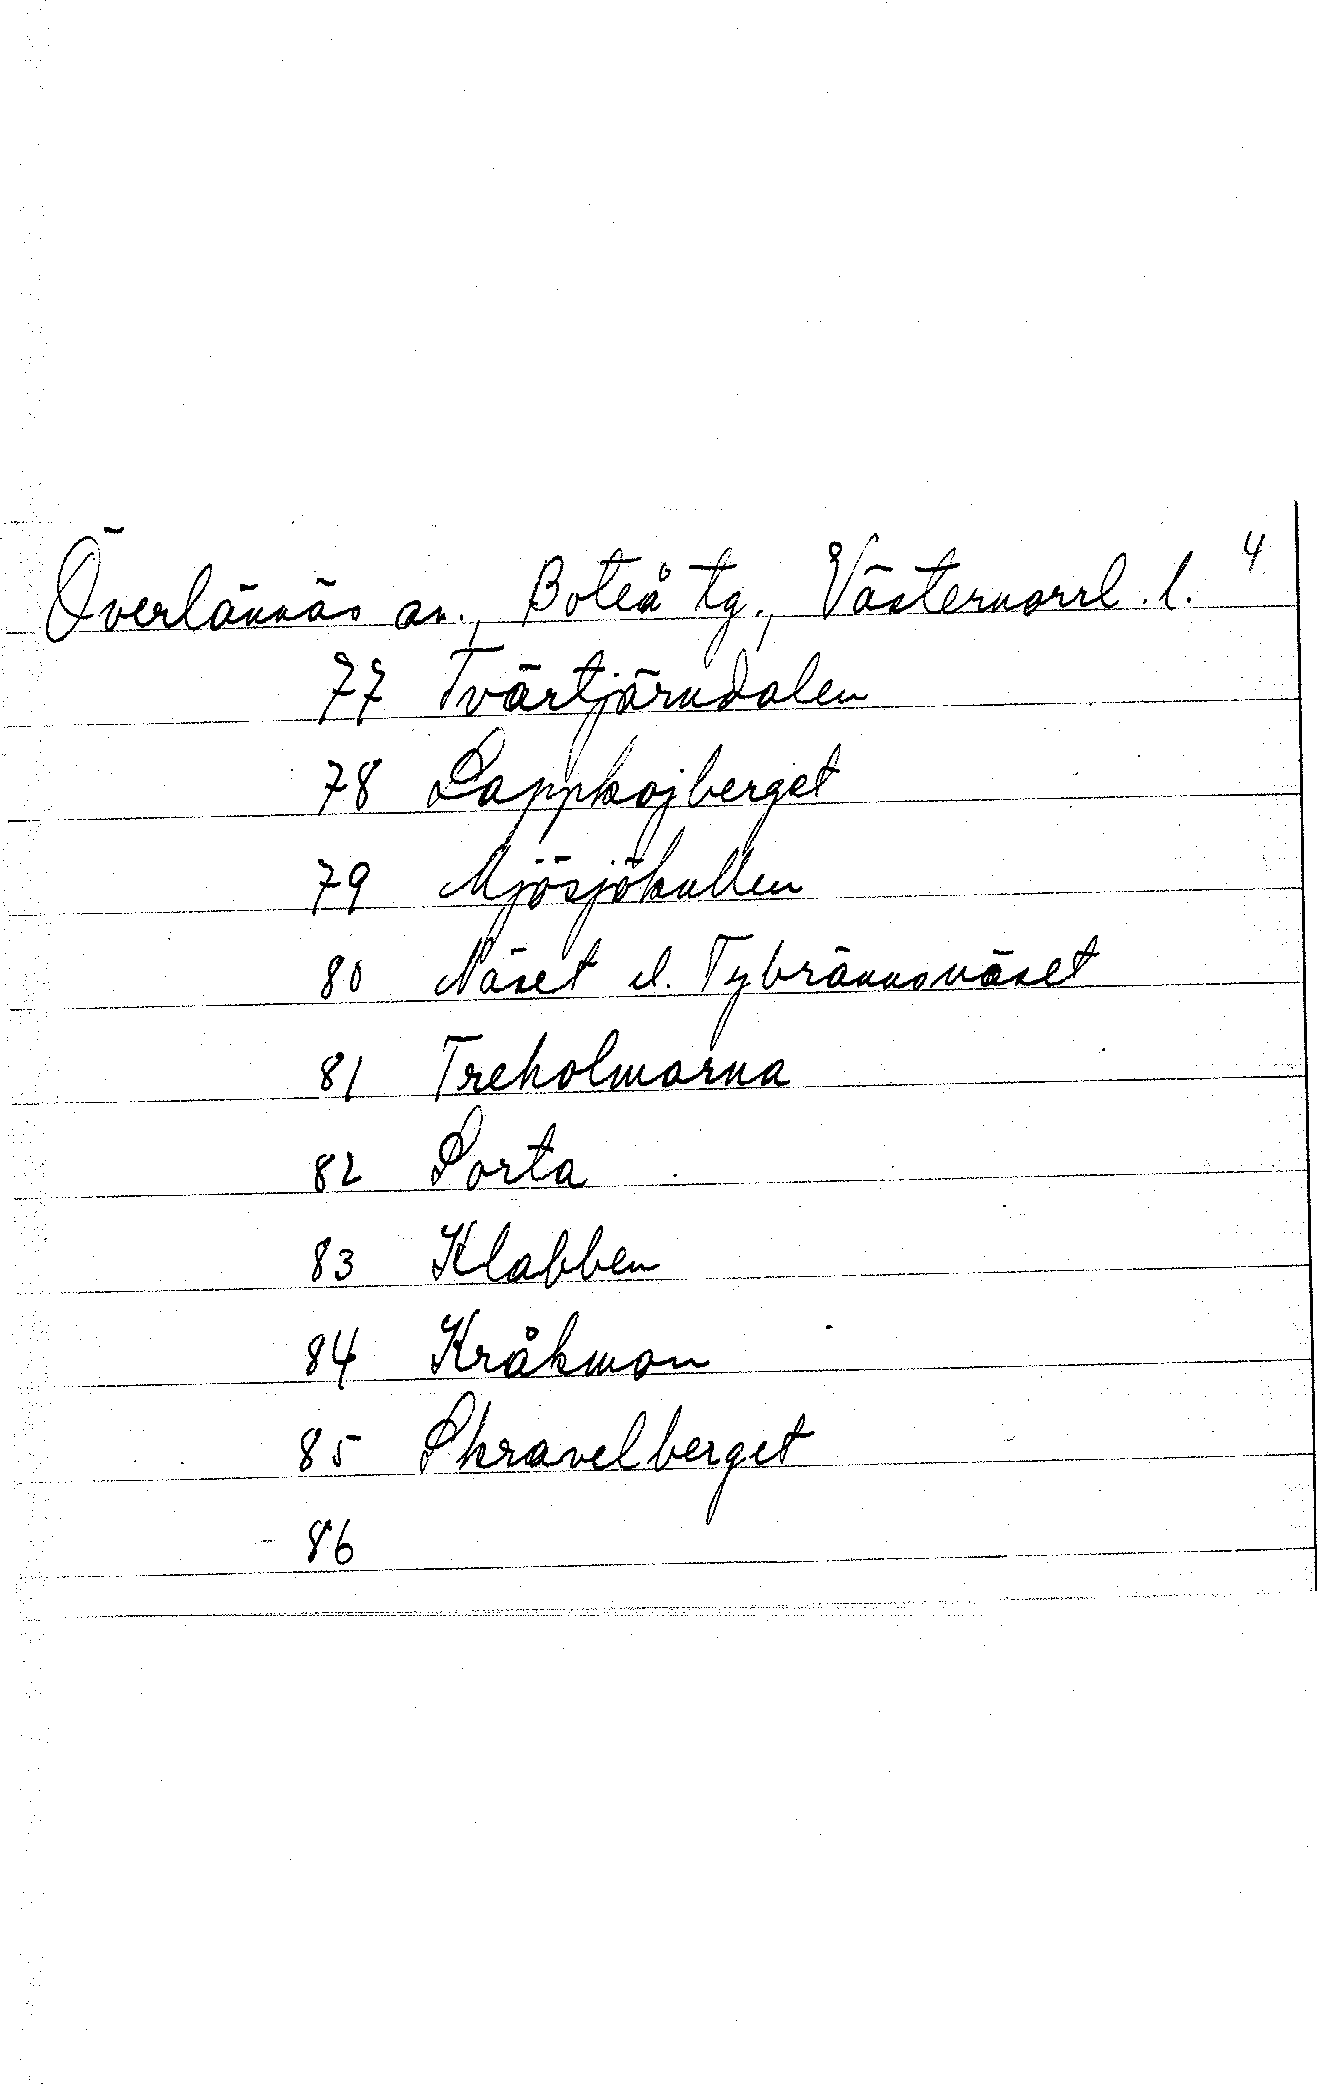 Överlännäs sn., Boteå tg., Västernorrl. l. 4
77 Tvärtjärndalen
78 Lappkojberget
79 Mjösjökullen
80 Näset el. Tybrännsnäset
81 Treholmarna
82 Sorta
83 Klabben
84 Kråkmon
85 Skravelberget
86